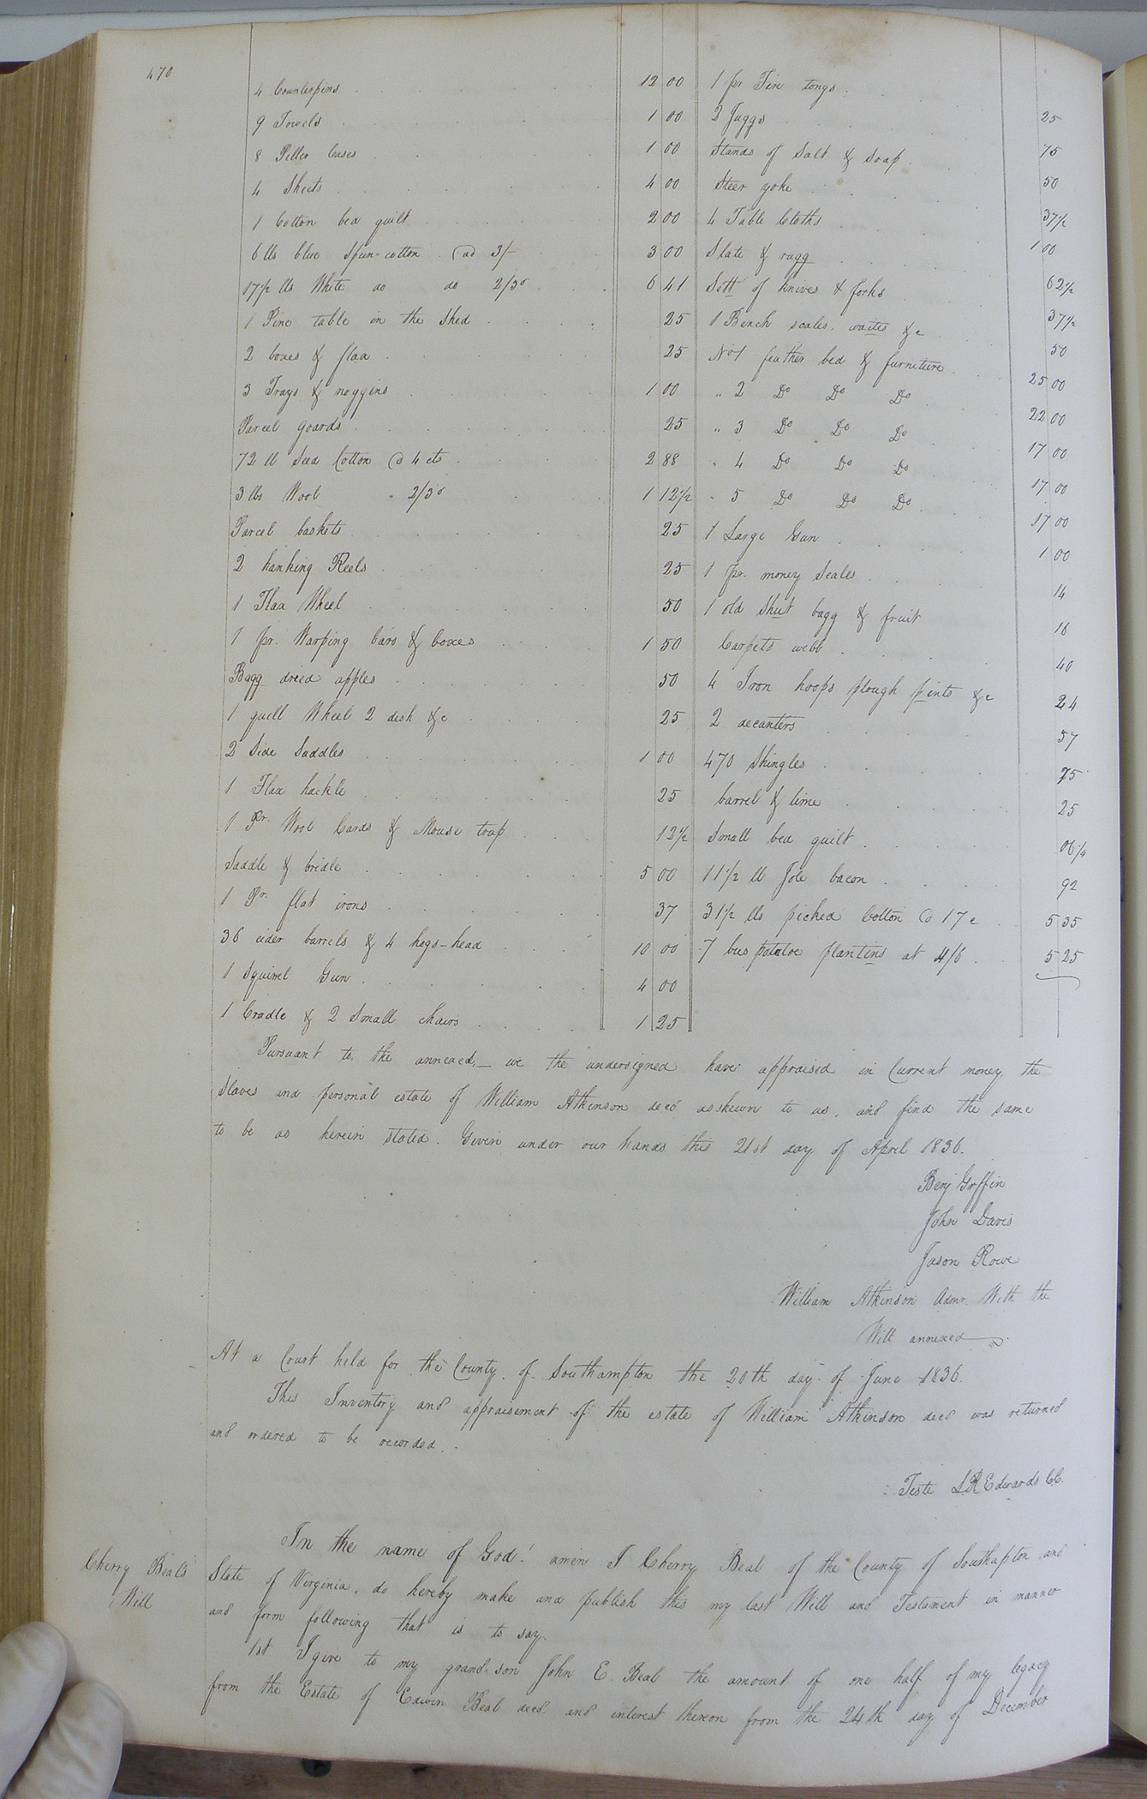 470
4 Counterpins 12 00
9 Towels 1 00
8 Pillow Cases 1 00
4 Sheets 4 00
1 Cotton bed quilt 2 00
6 lbs blue Spun-cotton @ 3/- 3 00
17½ lbs White do do 2/3d 6 41
1 Pine table in the Shed 25
2 boxes & flax 25
3 Trays & noggins 1 00
Parcel goards 25
72 lb Seed Cotton @ 4 cts 2 88
3 lbs Wool " 2/3d 1 12½
Parcel baskets 25
2 hanking Reels 25
1 Flax Wheel 50
1 pr. Warping bars & boxes 1 50
Bagg dried apples 50
1 quill Wheel 2 desk &c 25
2 Side Saddles 1 00
1 Flax hackle 25
1 Pr. Wool Cards & Mouse trap 12½
Saddle & bridle 5 00
1 Pr. flat irons 37
36 cider barrels & 4 hogs-head 10 00
1 Squirrel Gun 4 00
1 Cradle & 2 Small chairs 1 25
1 pr Fire tongs 25
2 Juggs 75
Stands of Salt & Soap 50
Steer yoke 37½
4 Table Cloths 1 00
Slate & ragg 62½
Sett of knives & forks 37½
1 Bench scales, waites &c 50
No 1 feather bed & furniture 25 00
" 2 Do Do Do 22 00
" 3 Do Do Do 17 00
" 4 Do Do Do 17 00
" 5 Do Do Do 17 00
1 Large Gun 1 00
1 pr. money Scales 14
1 old Shut bagg & fruit 18
Carpets webb 40
4 Iron hoops plough pints &c 24
2 decanters 57
470 Shingles 75
barrel & lime 25
Small bed quilt 06¼
11½ lb Jole bacon 92
31½ lbs picked Cotton @ 17c 5 35
7 bus potatoe plantins at 4/6 5 25
Pursuant to the annexed,— we the undersigned have appraised in Current money the
Slaves and personal estate of William Atkinson decd asshewn to us, and find the same
to be as herein stated. Given under our hands this 21st day of April 1836.
Benj Griffin
John Davis
Jason Rowe
William Atkinson Admr. With the
Will annexed
At a Court held for the County of Southampton the 20th day of June 1836.
This Inventory and appraisement of the estate of William Atkinson decd was returned
and ordered to be recorded.
Teste L.R. Edwards C.C.
Cherry Beal's
Will
In the name of God! amen I Cherry Beal of the County of Southapton and
State of Virginia, do hereby make and publish this my last Will and Testament in manner
and form following that is to say.
1st I give to my grand-son John E. Beal the amount of one half of my legacy
from the Estate of Edwin Beal decd. and interest thereon from the 24th day of December